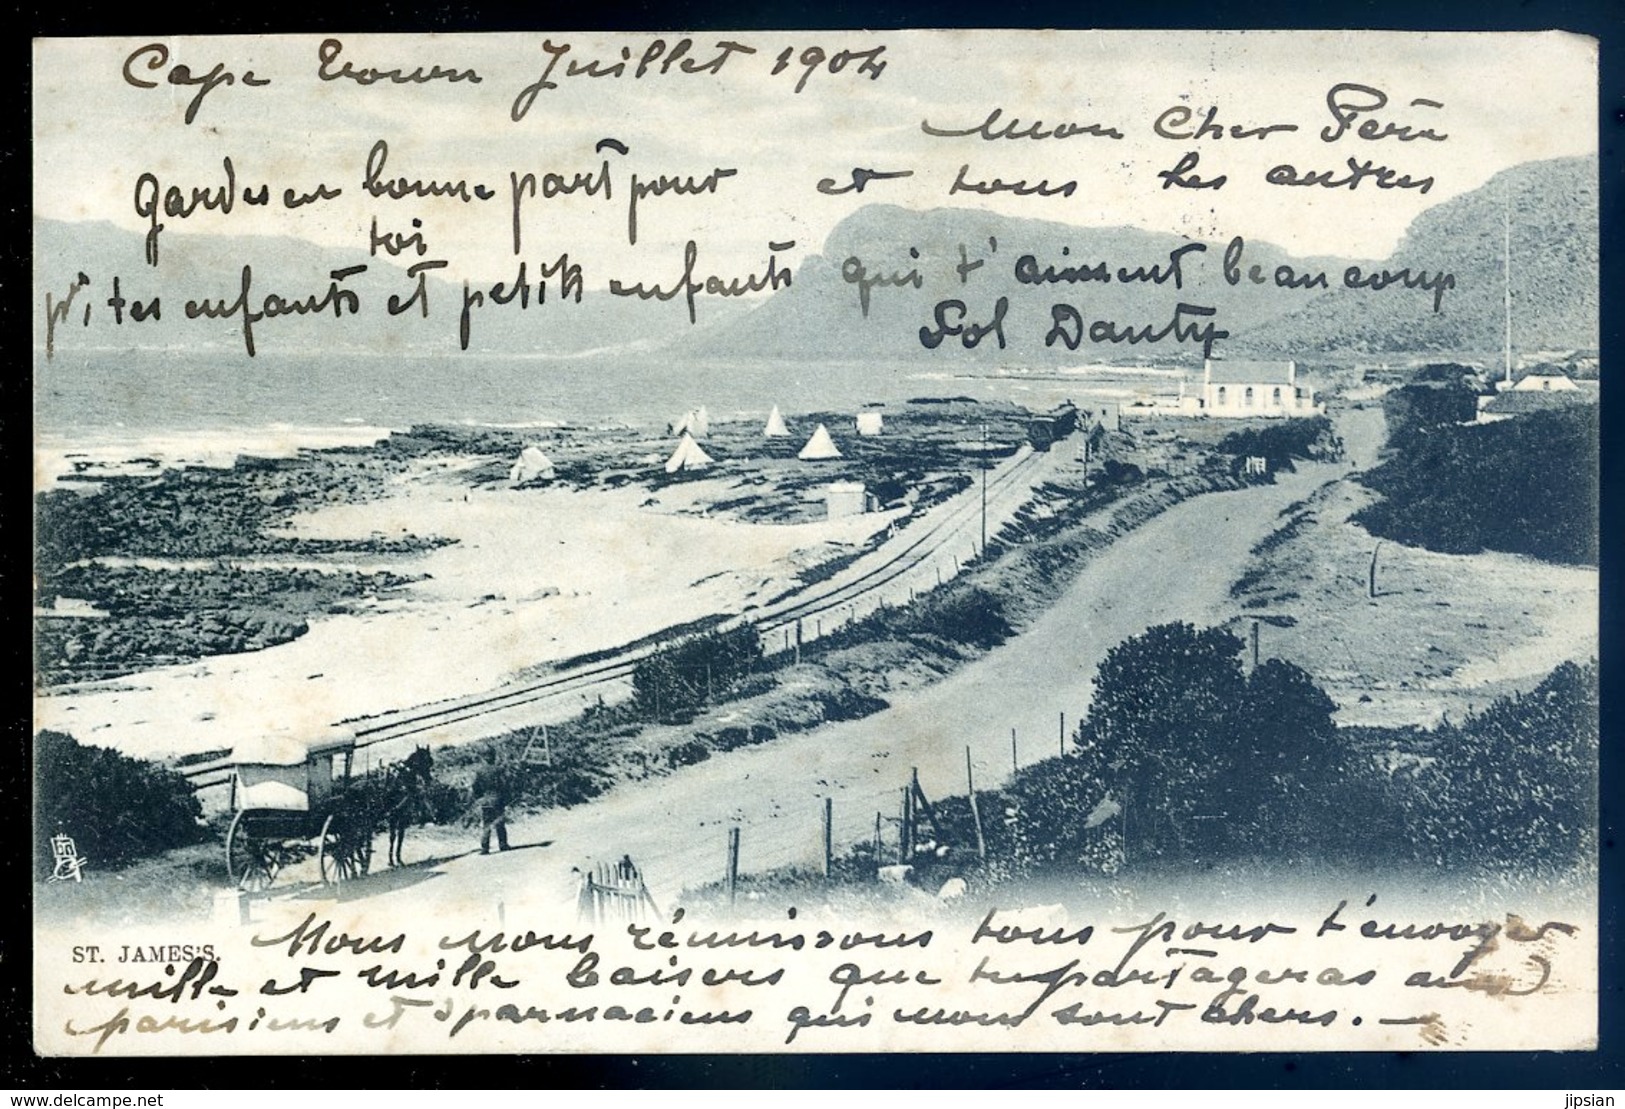 Cape Town Juillet 1904
Mon Cher Père
et tous les autres
gardes en bonne part pour
toi
pr, tes enfants et petits enfants qui t'aiment beaucoup
Sol Dauty
ST. JAMES'S.
Nous nous réunissons tous pour t'envoyer
mille et mille baisers que tu partageras aux
parisiens et sparnaciens qui nous sont chers. —
www.delcampe.net
jipsian